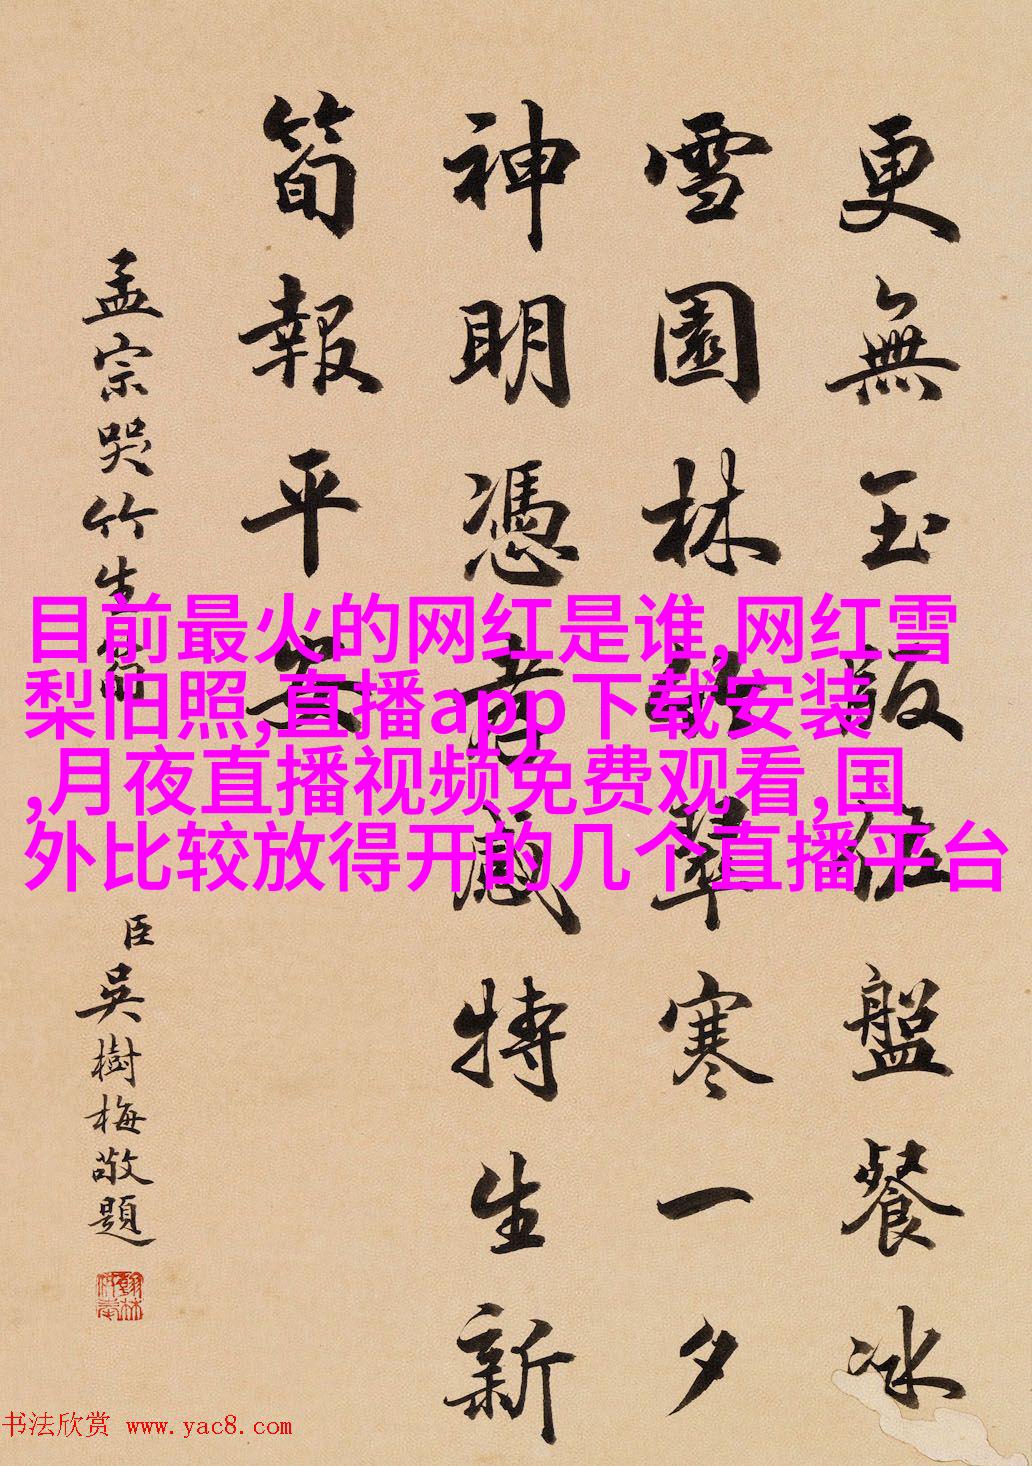 更無玉版佐盤餐冰
雪園林翠寒一夕
神明憑孝感特生新
筍報平安
孟宗哭竹生筍
臣吳樹梅敬題
目前最火的网红是谁,网红雪
梨旧照,直播app下载安装
,月夜直播视频免费观看,国
外比较放得开的几个直播平台
书法欣赏 www.yac8.com